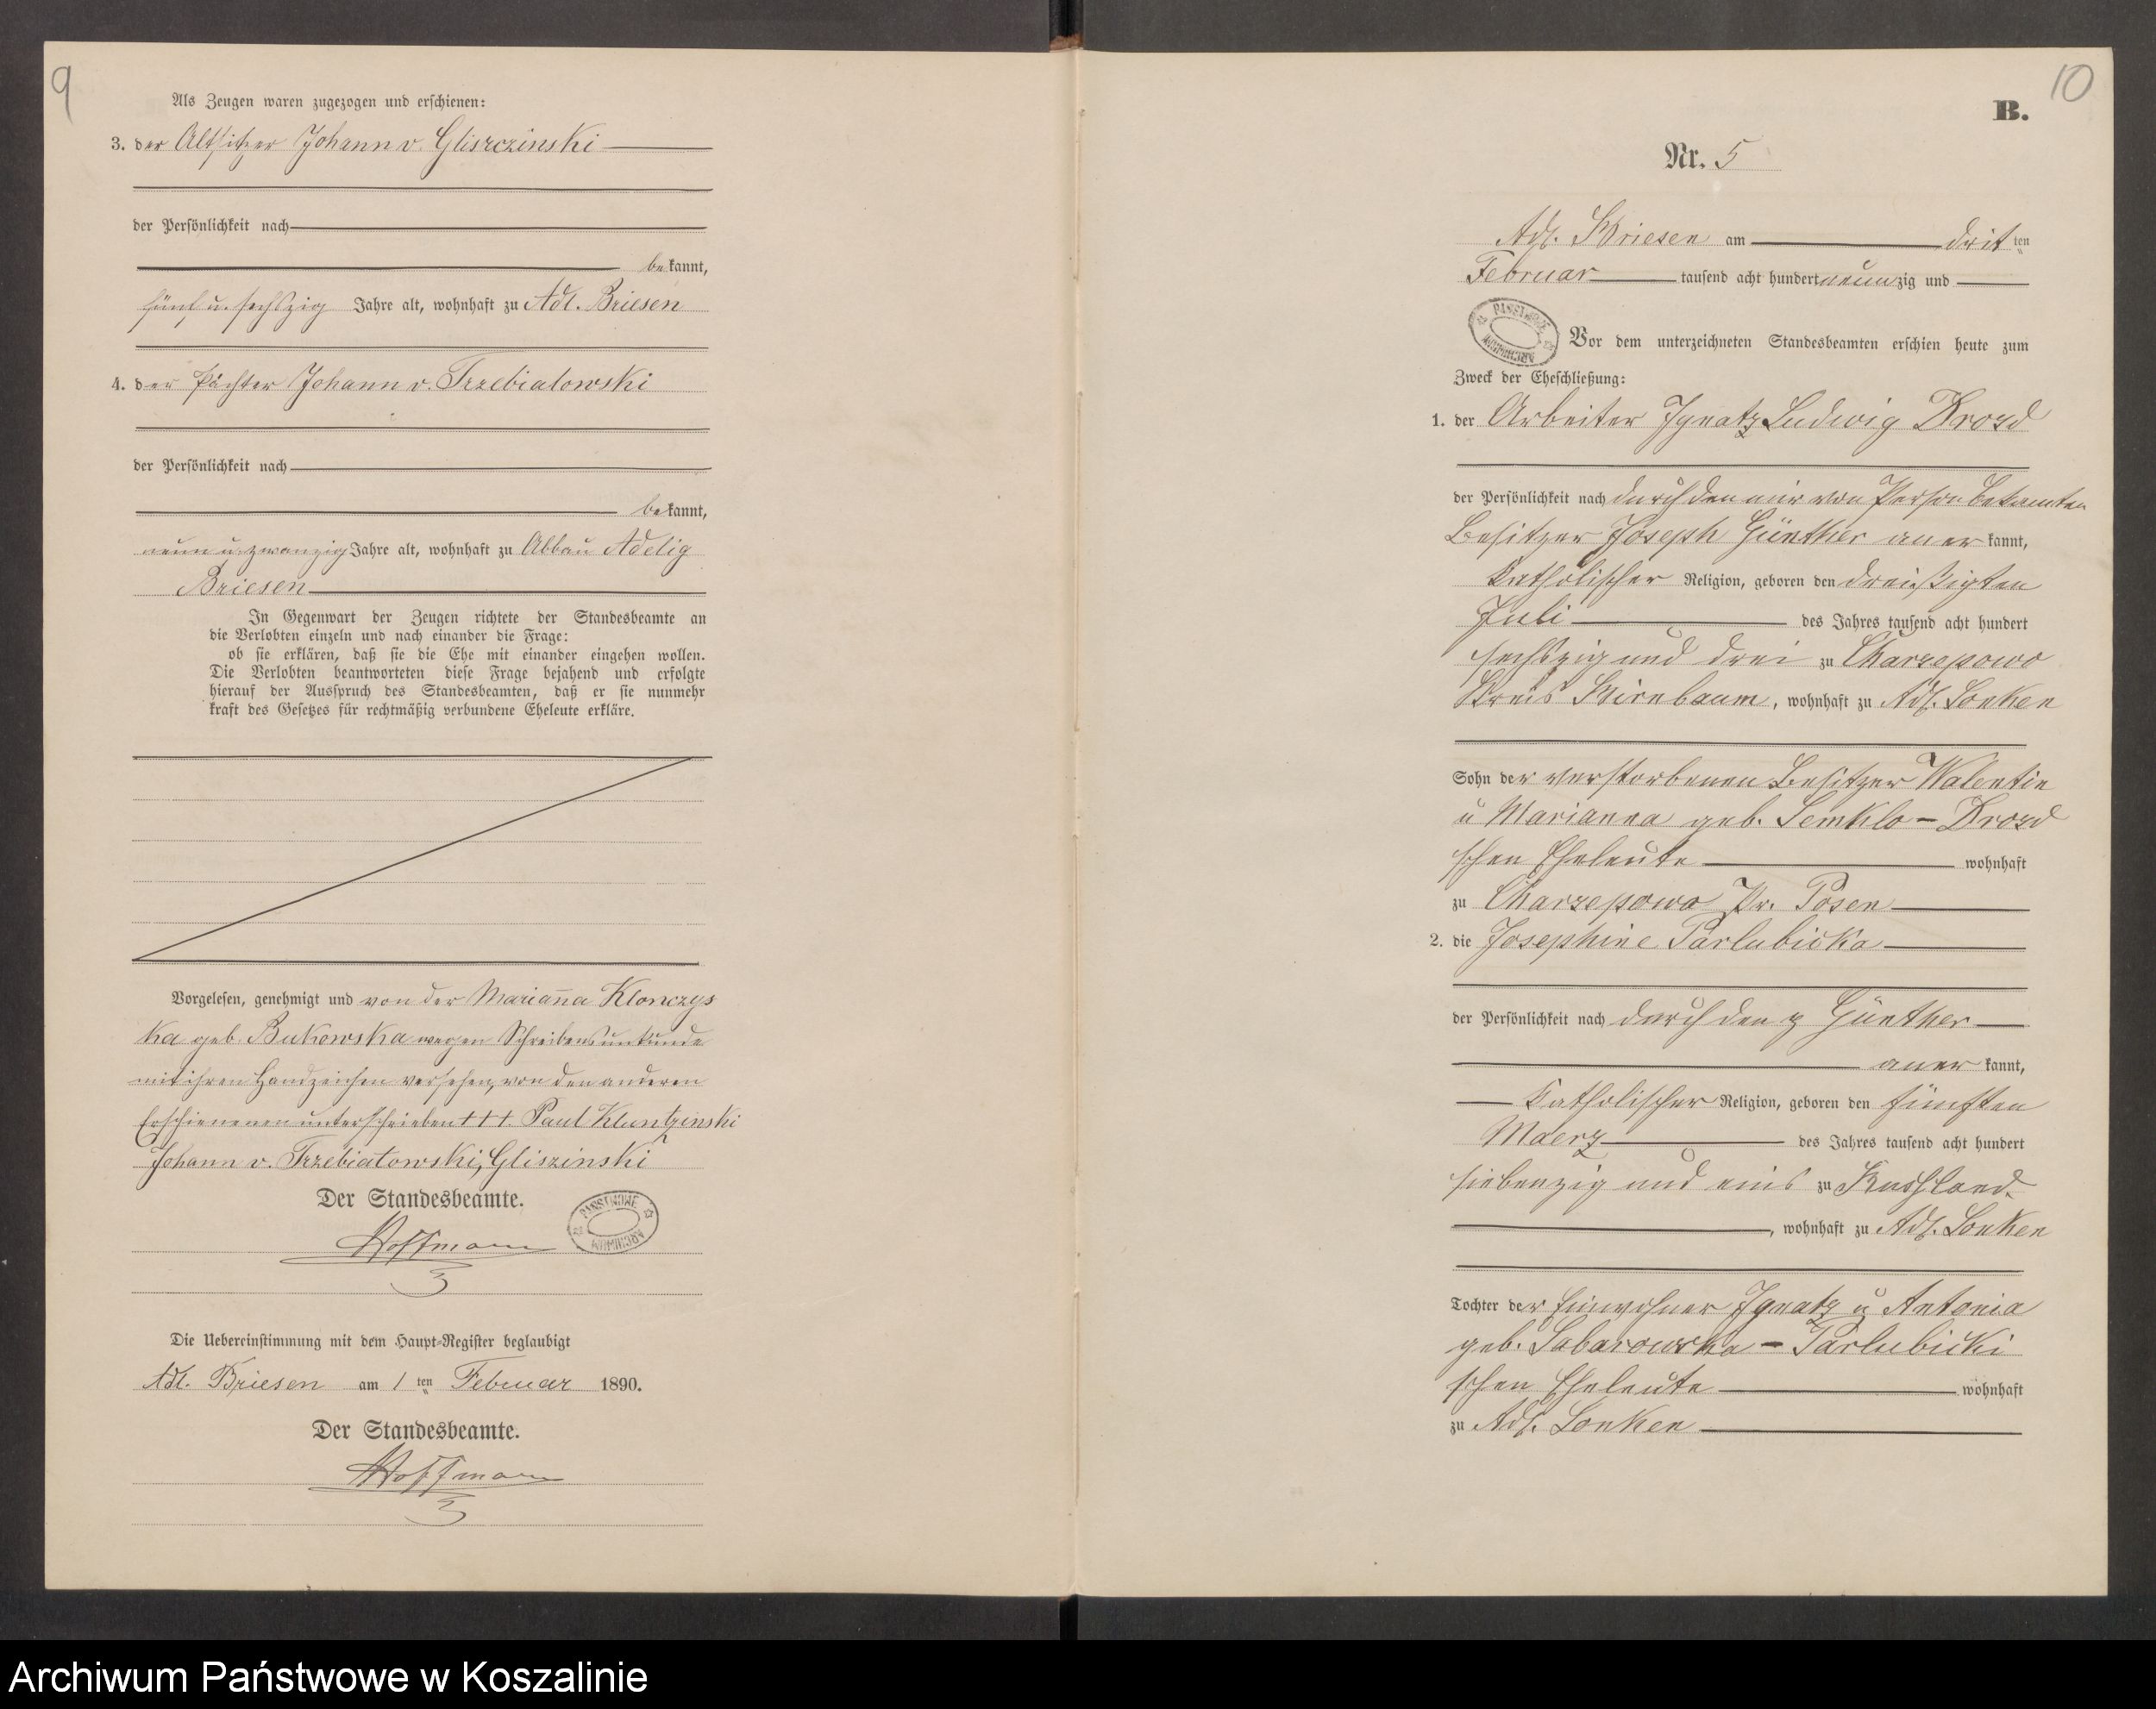 9
Als Zeugen waren zugezogen und erschienen:
3. der Altsitzer Johann v. Gliszczinski
der Persönlichkeit nach
bekannt,
fünf u. sechszig Jahre alt, wohnhaft zu Adl. Briesen
4. der Pächter Johann v. Trzebiatowski
der Persönlichkeit nach
bekannt,
neun u. zwanzig Jahre alt, wohnhaft zu Abbau Adelig
Briesen
In Gegenwart der Zeugen richtete der Standesbeamte an
die Verlobten einzeln und nach einander die Frage:
ob sie erklären, daß sie die Ehe mit einander eingehen wollen.
Die Verlobten beantworteten diese Frage bejahend und erfolgte
hierauf der Ausspruch des Standesbeamten, daß er sie nunmehr
kraft des Gesetzes für rechtmäßig verbundene Eheleute erkläre.
Vorgelesen, genehmigt und von der Marianna Klonczys
ka geb. Bukowska wegen Schreibensunkunde
mit ihren Handzeichen versehen, von den anderen
Erschienenen unterschrieben +++. Paul Kluntzinski
Johann v. Trzebiatowski, Gliszinski
Der Standesbeamte.
Hoffmann
PAŃSTWOWE ARCHIWUM
Die Uebereinstimmung mit dem Haupt-Register beglaubigt
Adl. Briesen am 1 ten Februar 1890.
Der Standesbeamte.
Hoffmann
10
B.
Nr. 5
Adl. Briesen am drit ten
Februar tausend acht hundert neunzig und
PAŃSTWOWE ARCHIWUM
Vor dem unterzeichneten Standesbeamten erschien heute zum
Zweck der Eheschließung:
1. der Arbeiter Ignatz Ludwig Drozd
der Persönlichkeit nach durch den mir von Person bekannten
Besitzer Joseph Günther anerkannt,
katholischer Religion, geboren den dreißigsten
Juli des Jahres tausend acht hundert
sechszig und drei zu Charzepowo
Kreis Birnbaum, wohnhaft zu Adl. Lonken
Sohn der verstorbenen Besitzer Walentin
u Marianna geb. Semklo - Drozd
schen Eheleute wohnhaft
zu Charzepowo Pr. Posen
2. die Josephine Parlubicka
der Persönlichkeit nach durch den p Günther
anerkannt,
katholischer Religion, geboren den fünften
Maerz des Jahres tausend acht hundert
siebenzig und eins zu Russland.
, wohnhaft zu Adl. Lonken
Tochter der Einwohner Ignatz u Antonia
geb. Labarowska - Parlubicki
schen Eheleute wohnhaft
zu Adl. Lonken
Archiwum Państwowe w Koszalinie